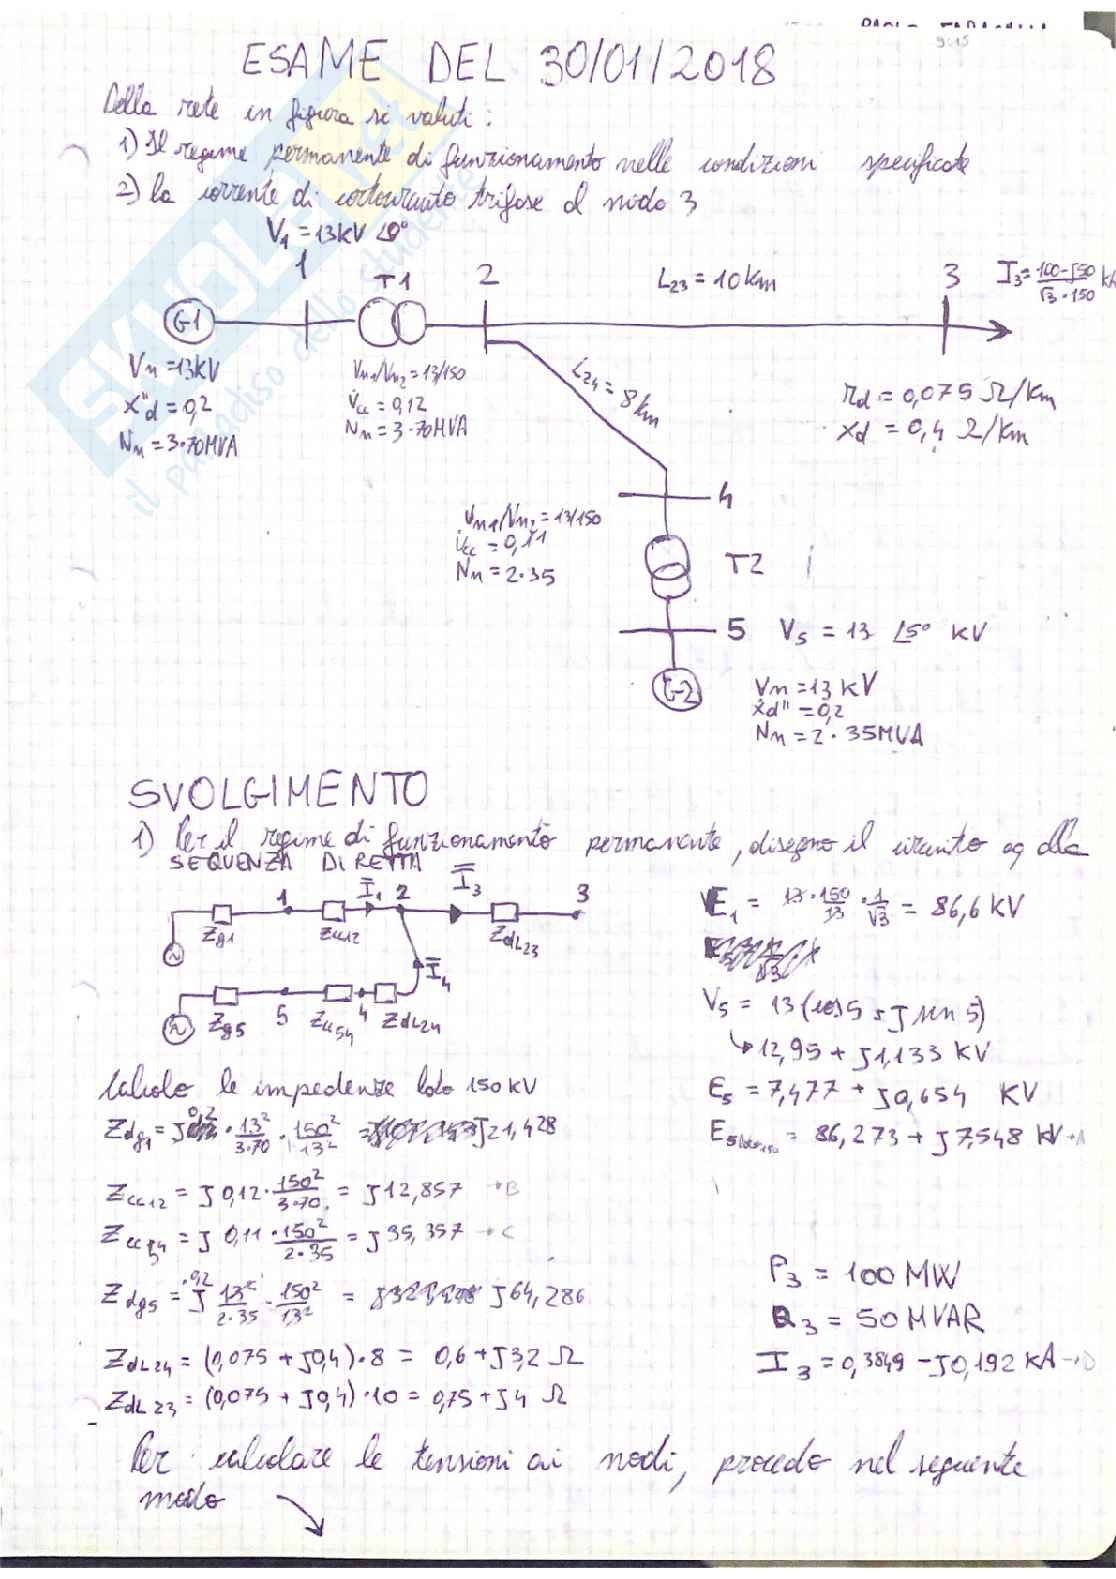 9:15
ESAME DEL 30/01/2018
Della rete in figura si valuti:
1) Il regime permanente di funzionamento nelle condizioni specificate
2) la corrente di cortocircuito trifase al nodo 3
V1 = 13kV ∠0°
1 T1 2 L23 = 10 Km 3 I3 = (100-J50)/(√3·150) kA
G1
Vn = 13kV
X"d = 0,2
Nn = 3·70MVA
Vn1/Vn2 = 13/150
Vcc = 0,12
Nn = 3·70MVA
L24 = 8 km
rd = 0,075 Ω/Km
xd = 0,4 Ω/Km
4
Vn1/Vn2 = 13/150
Vcc = 0,11
Nn = 2·35
T2
5 V5 = 13 ∠5° kV
G2
Vn = 13 kV
Xd" = 0,2
Nn = 2·35MVA
SVOLGIMENTO
1) Per il regime di funzionamento permanente, disegno il circuito eq alla
SEQUENZA DIRETTA
1 I1 2 I3 3
Zg1 Zcc12 ZdL23
I4
Zg5 5 Zcc54 4 ZdL24
E1 = 13·150/13 · 1/√3 = 86,6 KV
V5 = 13 (cos5 + J sen 5)
↳ 12,95 + J1,133 KV
E5 = 7,477 + J0,654 KV
E5 lato 150 = 86,273 + J7,548 KV → A
Calcolo le impedenze lato 150 kV
Zdg1 = J 0,2 · 13²/3·70 · 150²/13² = J21,428
Zcc12 = J 0,12 · 150²/3·70 = J12,857 → B
Zcc54 = J 0,11 · 150²/2·35 = J35,357 → C
Zdg5 = J 0,2 · 13²/2·35 · 150²/13² = J64,286
ZdL24 = (0,075 + J0,4)·8 = 0,6 + J3,2 Ω
ZdL23 = (0,075 + J0,4)·10 = 0,75 + J4 Ω
P3 = 100 MW
Q3 = 50 MVAR
I3 = 0,3849 - J0,192 kA → D
Per calcolare le tensioni ai nodi, procedo nel seguente
modo
SKUOLA.net
il paradiso dello studente